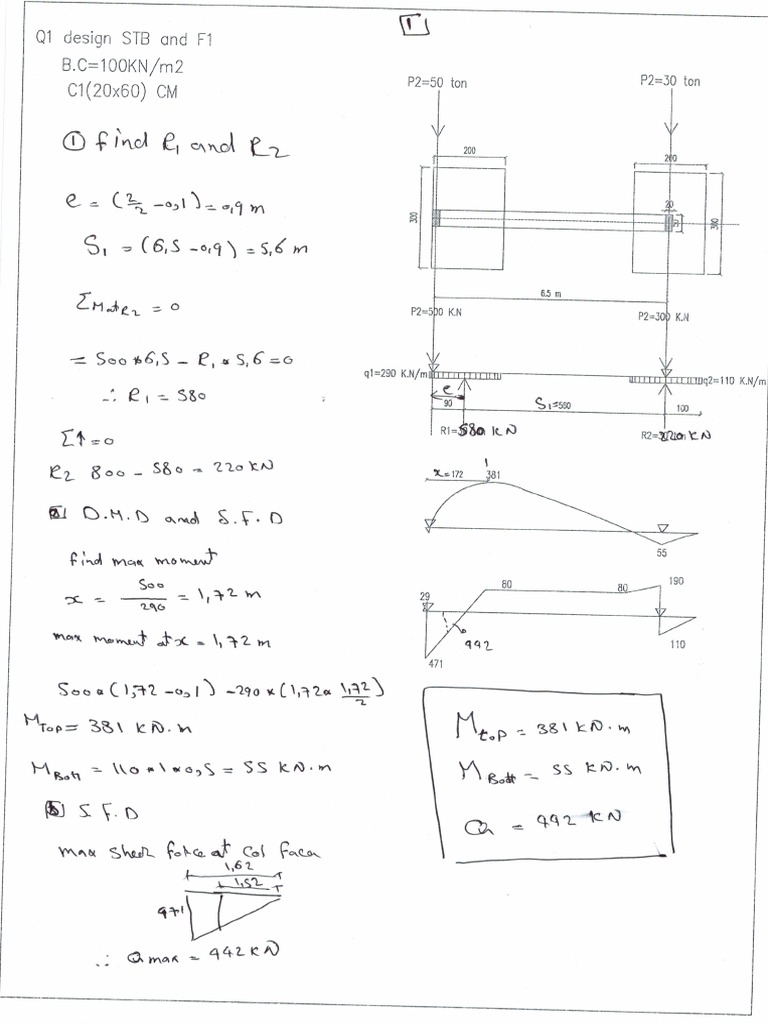 Γ
Q1 design STB and F1
B.C=100KN/m2
C1(20x60) CM
① find R₁ and R₂
e = (2/2 -0,1) = 0,9 m
S₁ = (6,5 -0,9) = 5,6 m
ΣM at R₂ = 0
= 500*6,5 - R₁*5,6 = 0
∴ R₁ = 580
Σ↑ = 0
R₂ 800 - 580 = 220 KN
B.M.D and S.F.D
find max moment
x = 500/290 = 1,72 m
max moment at x = 1,72 m
500*(1,72 -0,1) -290*(1,72*1,72/2)
M Top = 381 KN.m
M Bott = 110*1*0,5 = 55 KN.m
b S.F.D
max shear force at col face
1,62
1,52
471
∴ Qmax = 442 KN
P2=50 ton
P2=30 ton
200
200
300
20
300
6.5 m
P2=500 K.N
P2=300 K.N
q1=290 K.N/m
q2=110 K.N/m
e
90
S₁=560
100
R1=580 KN
R2=220 KN
x=172
381
55
29
80
80
190
442
471
110
M top = 381 KN.m
M Bott = 55 KN.m
Q = 442 KN